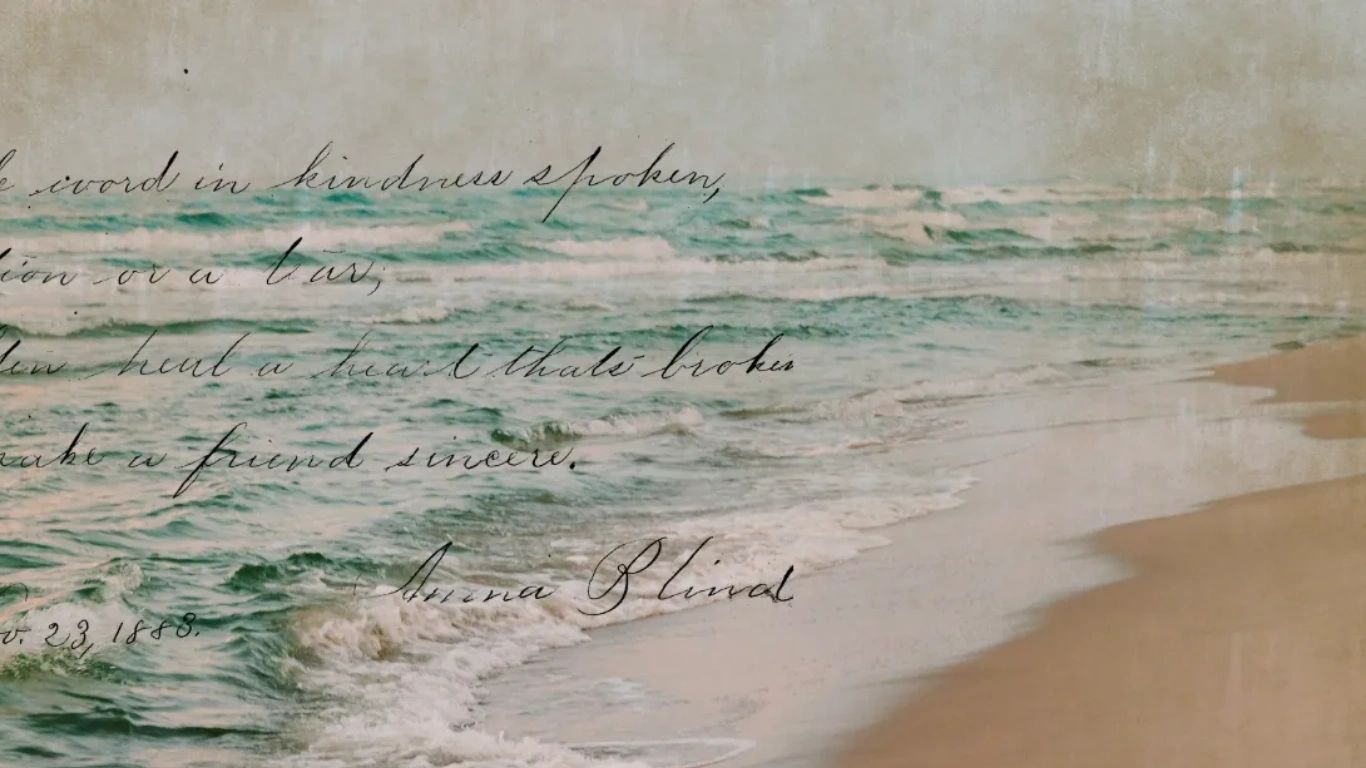 e word in kindness spoken,
tion or a tear;
ten heal a heart thats broken
make a friend sincere.
Anna Blind
v. 23, 1883.